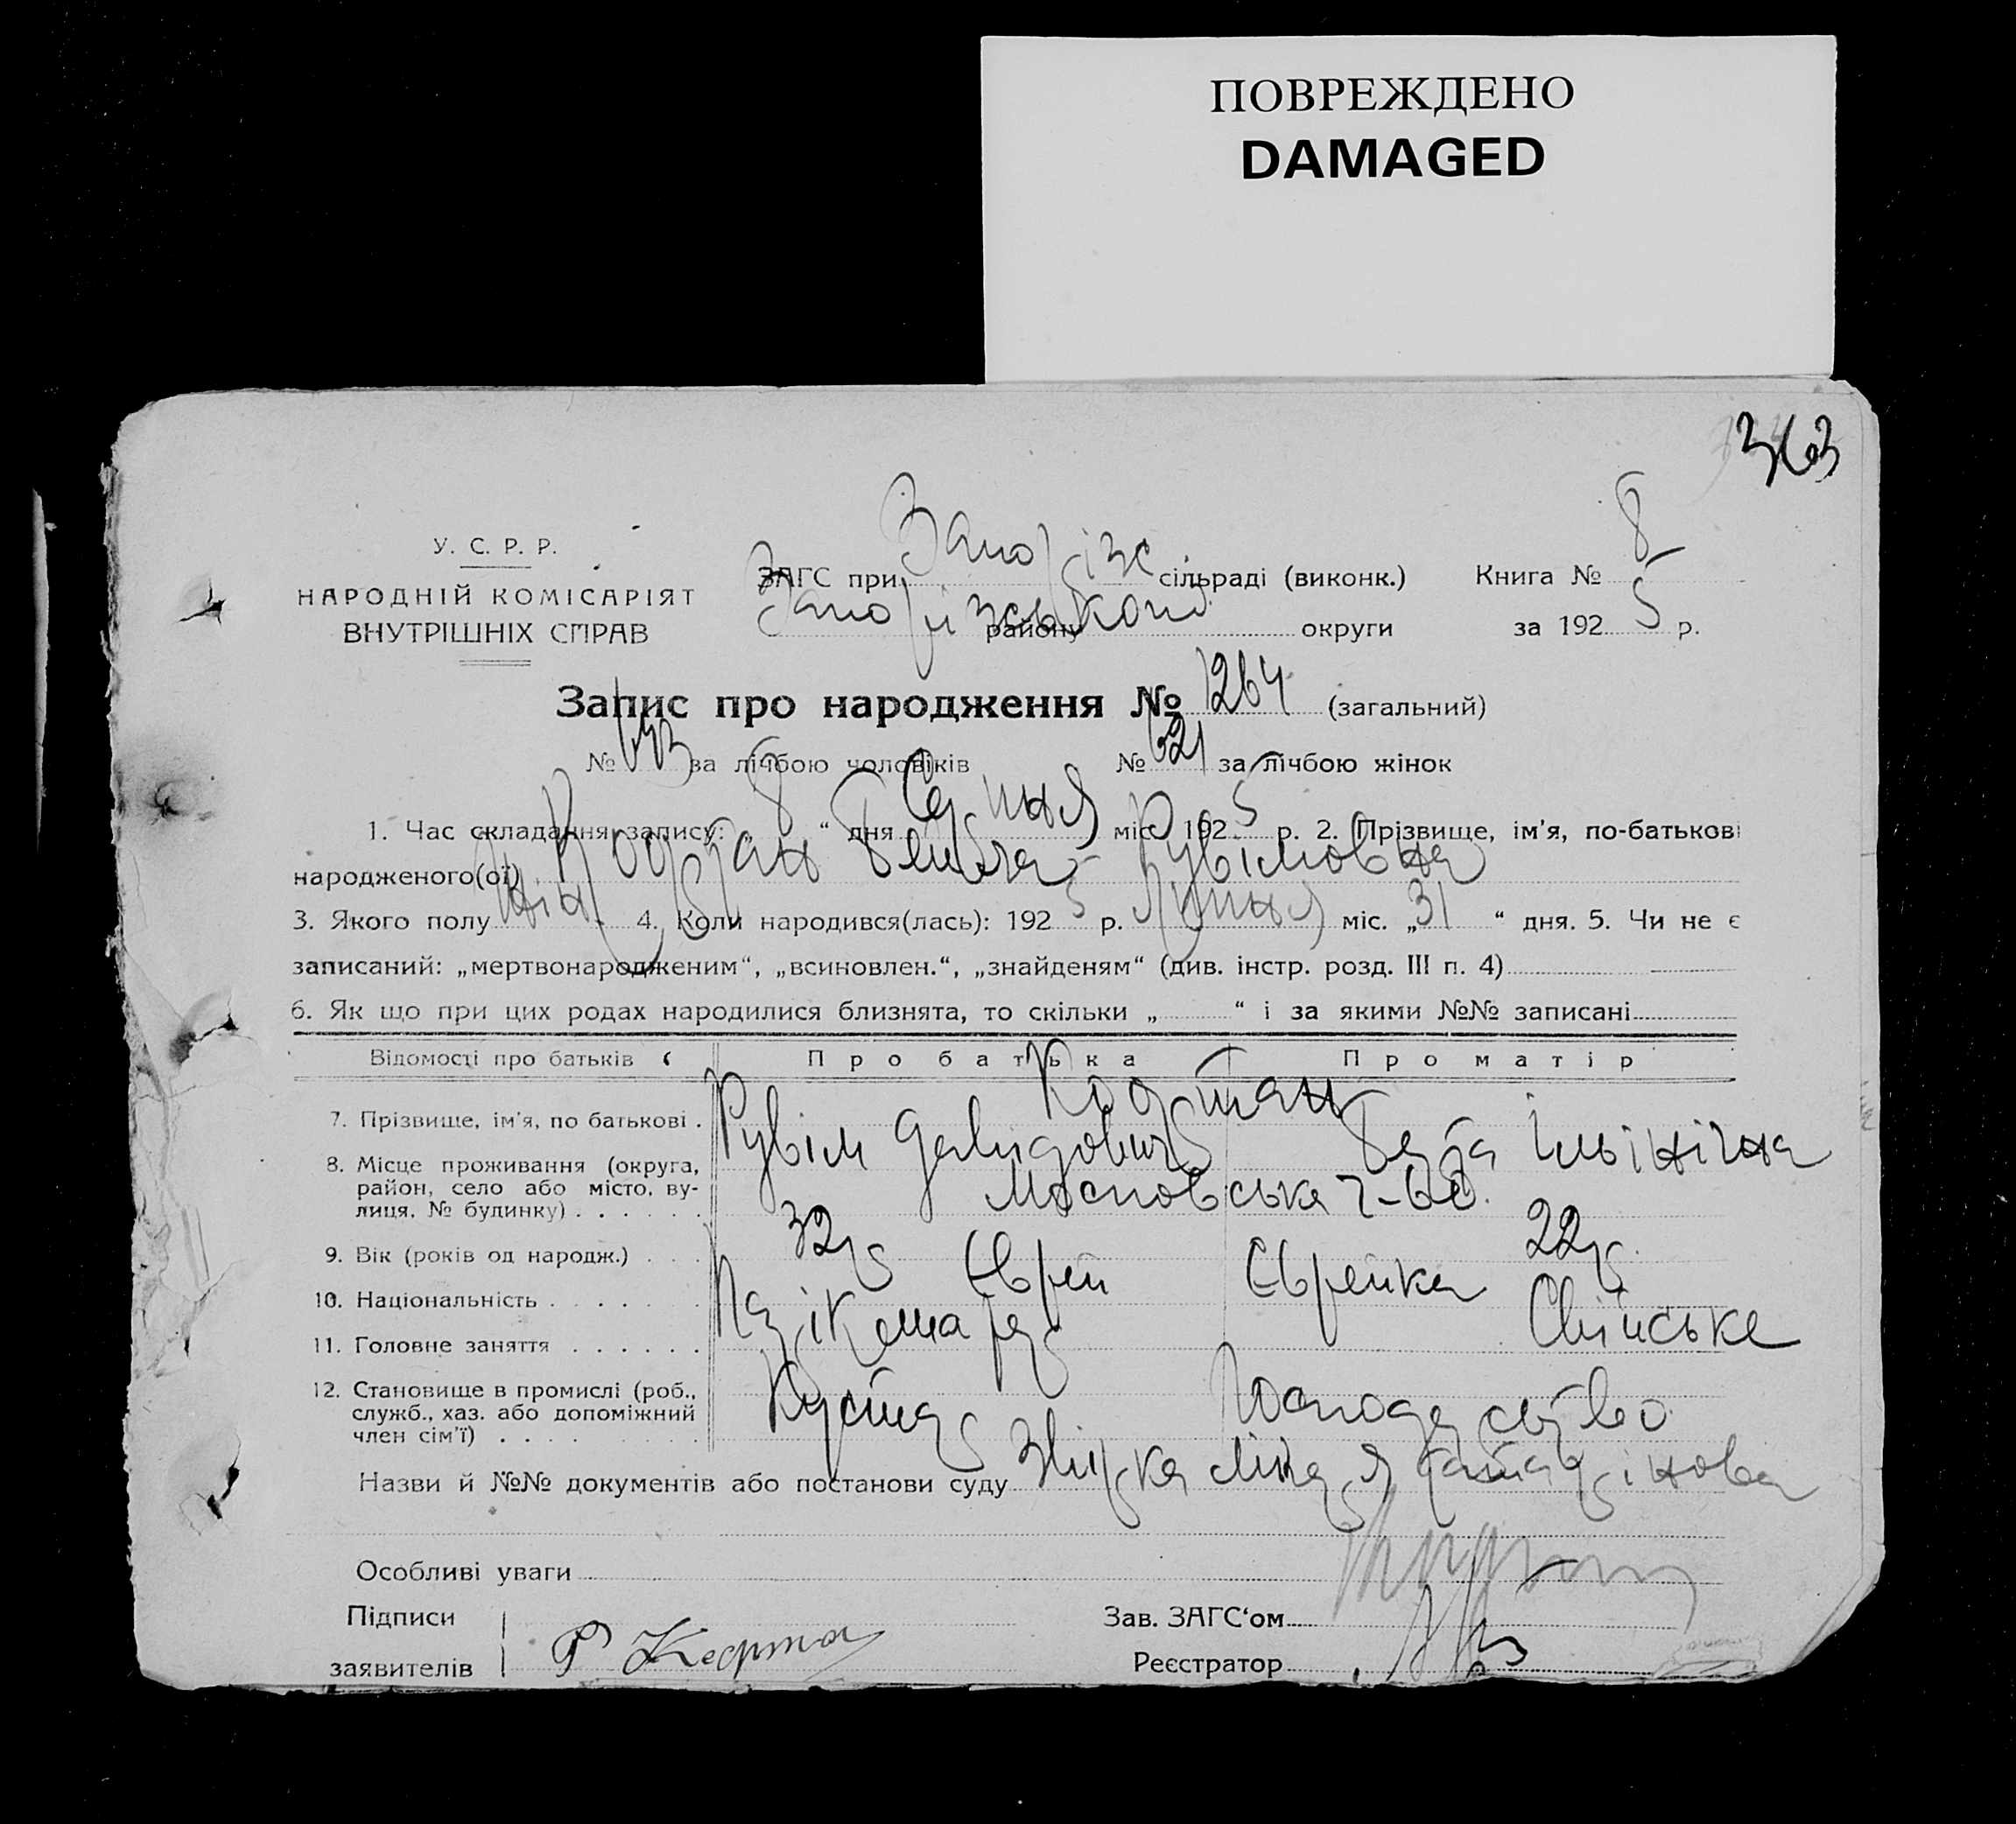 ПОВРЕЖДЕНО
DAMAGED
363
У. С. Р. Р.
НАРОДНІЙ КОМІСАРІЯТ
ВНУТРІШНІХ СПРАВ
ЗАГС при Запорізс сільраді (виконк.) Книга № 8
Запорізської району округи за 1925 р.
Запис про народження № 1264 (загальний)
№ 643 за лічбою чоловіків № 621 за лічбою жінок
1. Час складання запису: „8“ дня Серпня міс. 1925 р. 2. Прізвище, ім'я, по-батькові
народженого(ої) Рувімовна
3. Якого полу жін 4. Коли народився(лась): 1925 р. Липня міс. „31“ дня. 5. Чи не є
записаний: „мертвонародженим“, „всиновлен.“, „знайденям“ (див. інстр. розд. III п. 4)
6. Як що при цих родах народилися близнята, то скільки „ “ і за якими №№ записані
Відомості про батьків Про батька Про матір
7. Прізвище, ім'я, по батькові . Рувім Давидович Берта Ільінічна
8. Місце проживання (округа,
район, село або місто, ву-
лиця, № будинку) . . . . . . Московська
9. Вік (років од народж.) . . . 32р 22р.
10. Національність . . . . . . Єврей Єврейка
11. Головне заняття . . . . . . Парікмахер Свійське
12. Становище в промислі (роб.,
служб., хаз. або допоміжний
член сім'ї) . . . . Кустар Господарство
Назви й №№ документів або постанови суду
Особливі уваги
Підписи
заявителів
Зав. ЗАГС'ом
Реєстратор